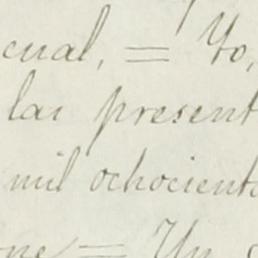 cual, = Yo,
las present
mil ochociento